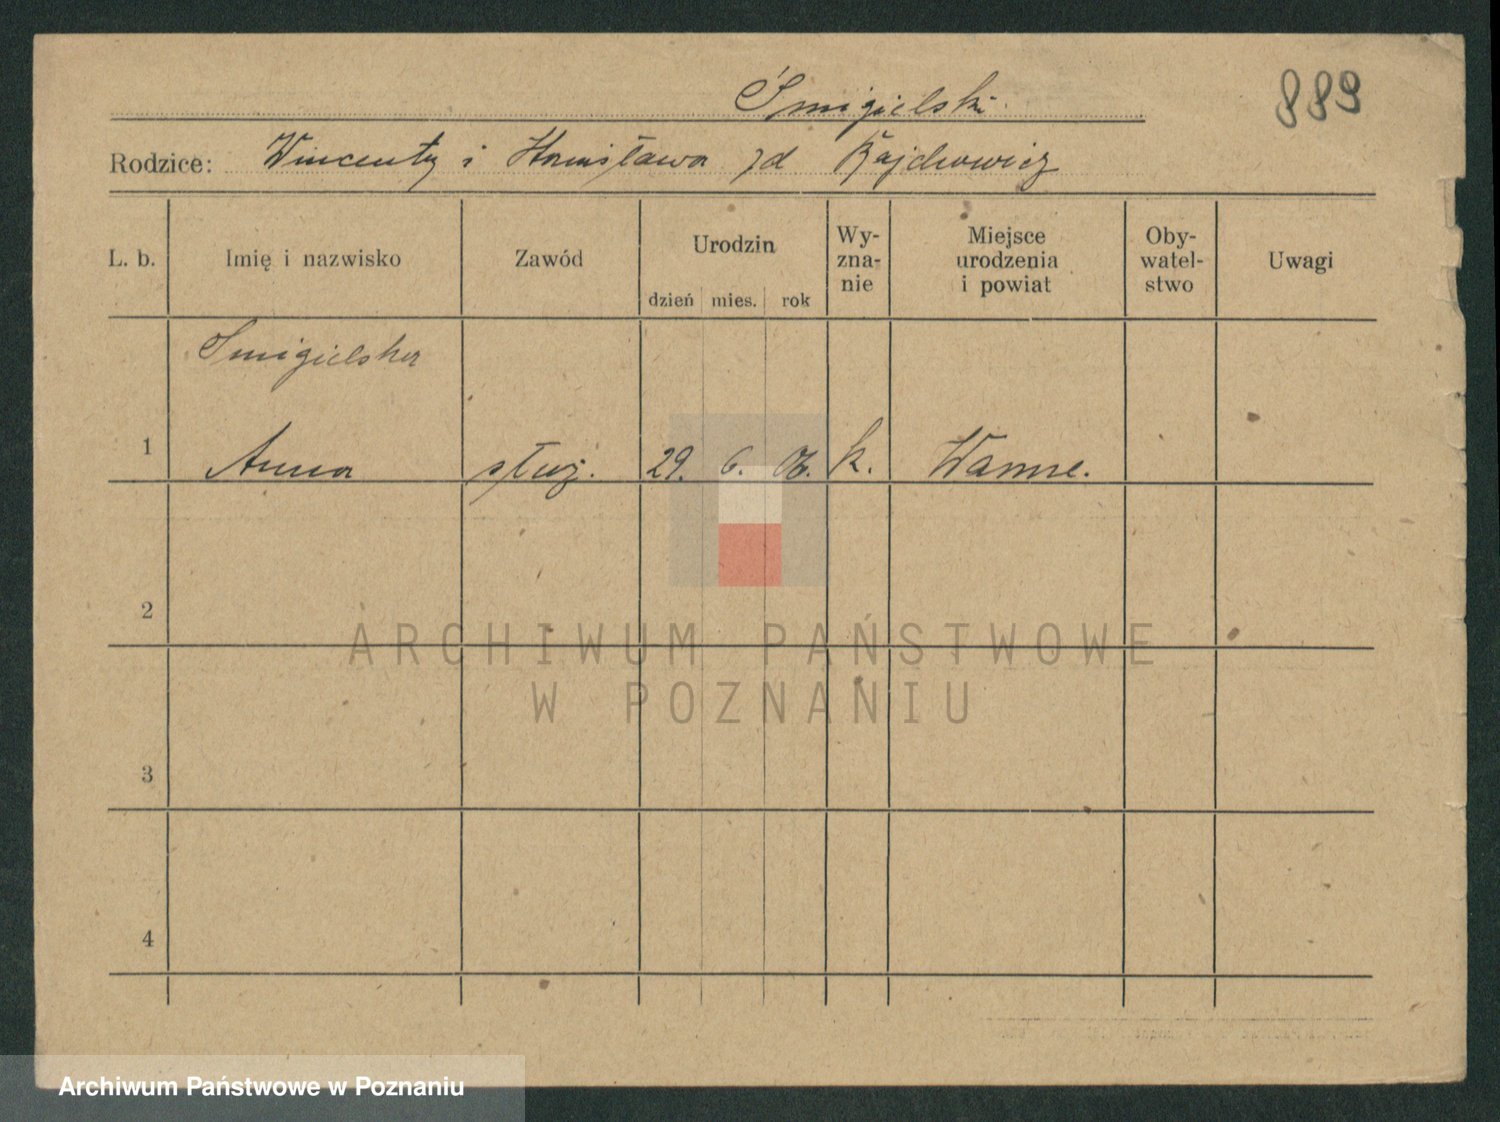 Śmigielski.
889
Rodzice: Wincenty i Stanisława zd Rajchowicz
L. b.
Imię i nazwisko
Zawód
Urodzin
dzień mies. rok
Wy-
zna-
nie
Miejsce
urodzenia
i powiat
Oby-
watel-
stwo
Uwagi
Smigielska
1 Anna służ. 29. 6. 06. k. Wanne.
2
ARCHIWUM PAŃSTWOWE
W POZNANIU
3
4
Archiwum Państwowe w Poznaniu